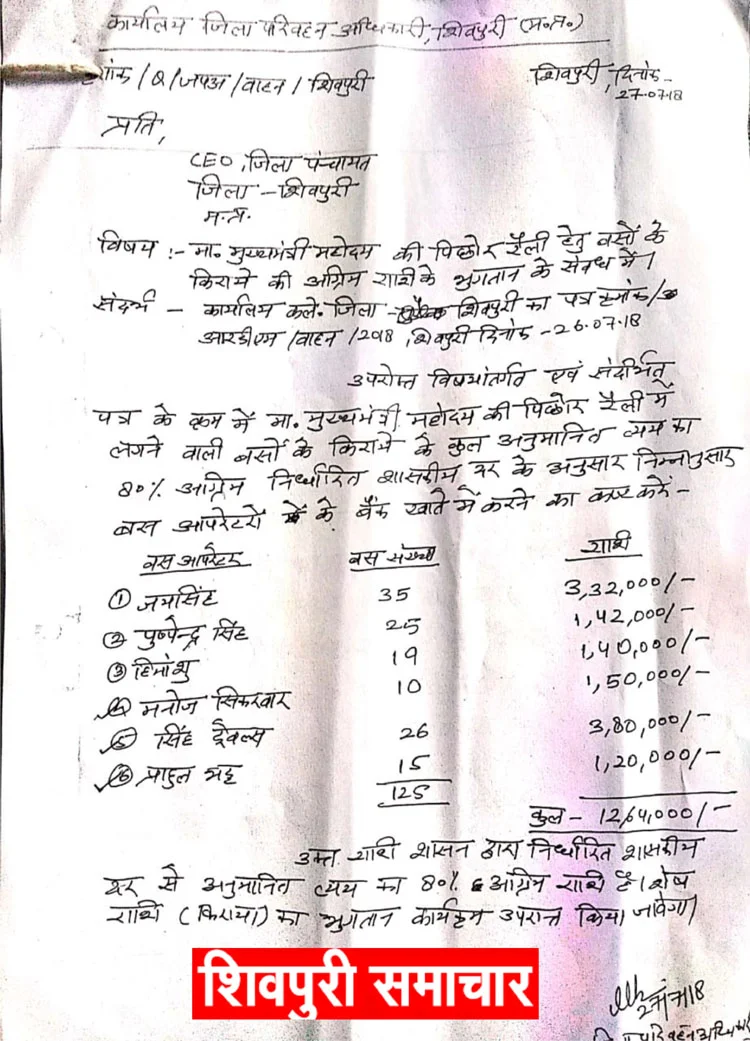 कार्यालय जिला परिवहन अधिकारी, शिवपुरी (म.प्र.)
/Q/जपअ/वाहन/शिवपुरी
शिवपुरी, दिनांक-
27.07.18
प्रति,
CEO, जिला पंचायत
जिला - शिवपुरी
म.प्र.
विषय :- मा. मुख्यमंत्री महोदय की पिछोर रैली हेतु बसों के
किराये की अग्रिम राशि के भुगतान के संबंध में।
संदर्भ - कार्यालय कले. जिला - शिवपुरी का पत्र क्रमांक/
आरडीएम/वाहन/2018, शिवपुरी दिनांक - 26.07.18
उपरोक्त विषयांतर्गत एवं संदर्भित
पत्र के क्रम में मा. मुख्यमंत्री महोदय की पिछोर रैली में
लगने वाली बसों के किराये के कुल अनुमानित व्यय का
80% अग्रिम निर्धारित शासकीय दर के अनुसार निम्नानुसार
बस आपरेटरों के बैंक खाते में करने का कष्ट करें-
बस आपरेटर बस संख्या राशी
① जयसिंह 35 3,32,000/-
② पुष्पेन्द्र सिंह 25 1,42,000/-
③ हिमांशु 19 1,40,000/-
④ मनोज सिकरवार 10 1,50,000/-
⑤ सिंह ट्रैवल्स 26 3,80,000/-
⑥ 15 1,20,000/-
125
कुल - 12,64,000/-
उक्त राशि शासन द्वारा निर्धारित शासकीय
दर से अनुमानित व्यय का 80% अग्रिम राशि है। शेष
राशि (किराया) का भुगतान कार्यक्रम उपरान्त किया जावेगा।
शिवपुरी समाचार